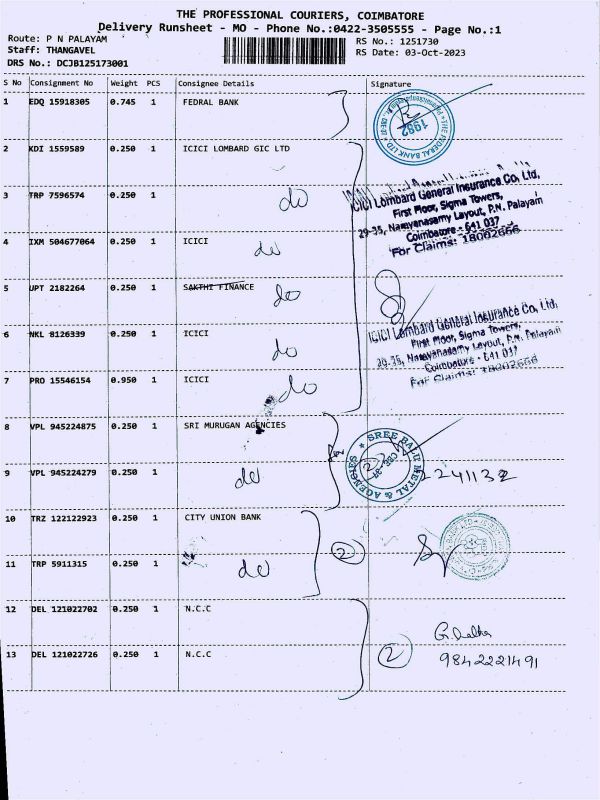 THE PROFESSIONAL COURIERS, COIMBATORE
Delivery Runsheet - MO - Phone No.:0422-3505555 - Page No.:1
Route: P N PALAYAM
RS No.: 1251730
Staff: THANGAVEL
RS Date: 03-Oct-2023
DRS No.: DCJB125173001
S No Consignment No Weight PCS Consignee Details Signature
1 EDQ 15918305 0.745 1 FEDRAL BANK
THE FEDERAL BANK LTD
1982
2 KDI 1559589 0.250 1 ICICI LOMBARD GIC LTD
3 TRP 7596574 0.250 1 do
ICICI Lombard General Insurance Co. Ltd.
First Floor, Sigma Towers,
29-35, Narayanasamy Layout, P.N. Palayam
Coimbatore - 641 037
For Claims: 18002666
4 IXM 504677064 0.250 1 ICICI do
5 UPT 2182264 0.250 1 SAKTHI FINANCE do
6 NKL 8126339 0.250 1 ICICI do
ICICI Lombard General Insurance Co. Ltd.
First Floor, Sigma Towers,
29-35, Narayanasamy Layout, P.N. Palayam
Coimbatore - 641 037
For Claims: 18002666
7 PRO 15546154 0.950 1 ICICI do
8 VPL 945224875 0.250 1 SRI MURUGAN AGENCIES
SREE BALU METAL & AGENCIES
CBE-37
9 VPL 945224279 0.250 1 do
2241132
10 TRZ 122122923 0.250 1 CITY UNION BANK
2
11 TRP 5911315 0.250 1 do
12 DEL 121022702 0.250 1 N.C.C
13 DEL 121022726 0.250 1 N.C.C
2
9842221491